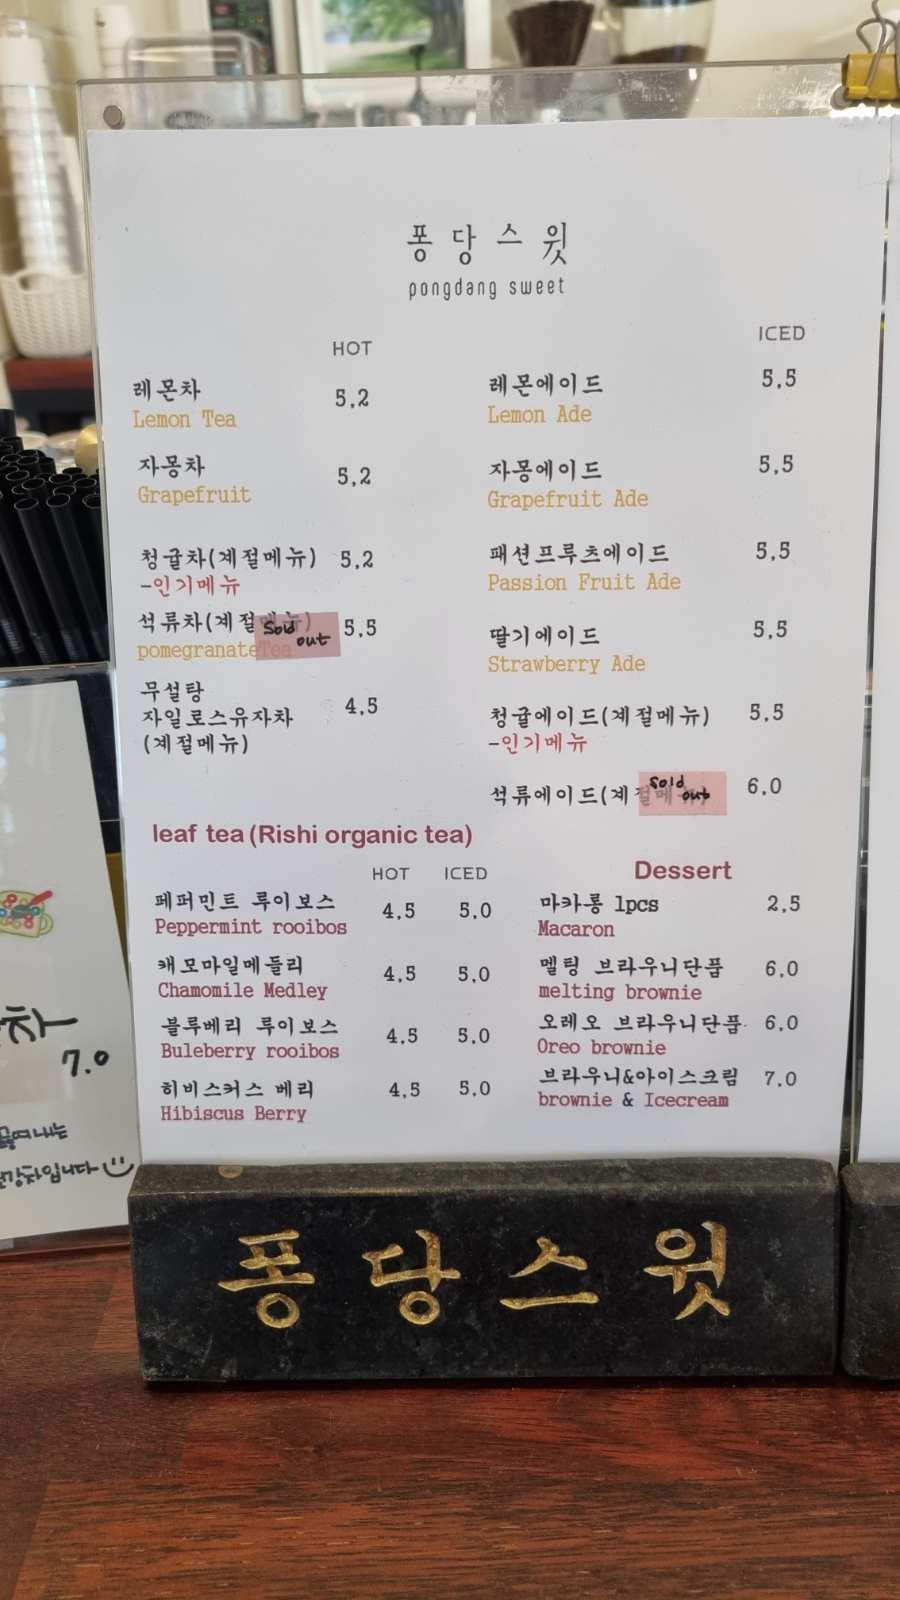 퐁당스윗
pongdang sweet
HOT
레몬차 5,2
Lemon Tea
자몽차 5,2
Grapefruit
청귤차(계절메뉴) 5,2
-인기메뉴
석류차(계절메뉴) 5,5
Sold out
pomegranateTea
무설탕
자일로스유자차 4,5
(계절메뉴)
ICED
레몬에이드 5,5
Lemon Ade
자몽에이드 5,5
Grapefruit Ade
패션프루츠에이드 5,5
Passion Fruit Ade
딸기에이드 5,5
Strawberry Ade
청귤에이드(계절메뉴) 5,5
-인기메뉴
석류에이드(계절메뉴) 6,0
Sold out
leaf tea (Rishi organic tea)
HOT ICED
페퍼민트 루이보스 4,5 5,0
Peppermint rooibos
캐모마일메들리 4,5 5,0
Chamomile Medley
블루베리 루이보스 4,5 5,0
Buleberry rooibos
히비스커스 베리 4,5 5,0
Hibiscus Berry
Dessert
마카롱 1pcs 2,5
Macaron
멜팅 브라우니단품 6,0
melting brownie
오레오 브라우니단품 6,0
Oreo brownie
브라우니&아이스크림 7,0
brownie & Icecream
퐁당스윗
차
7.0